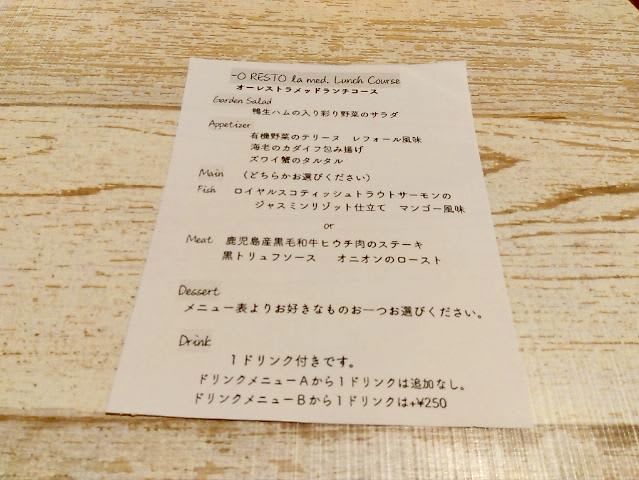 -O RESTO la med. Lunch Course
オーレストラメッドランチコース
Garden Salad
鴨生ハムの入り彩り野菜のサラダ
Appetizer
有機野菜のテリーヌ レフォール風味
海老のカダイフ包み揚げ
ズワイ蟹のタルタル
Main （どちらかお選びください）
Fish ロイヤルスコティッシュトラウトサーモンの
ジャスミンリゾット仕立て マンゴー風味
or
Meat 鹿児島産黒毛和牛ヒウチ肉のステーキ
黒トリュフソース オニオンのロースト
Dessert
メニュー表よりお好きなものお一つお選びください。
Drink
1ドリンク付きです。
ドリンクメニューAから1ドリンクは追加なし。
ドリンクメニューBから1ドリンクは+¥250